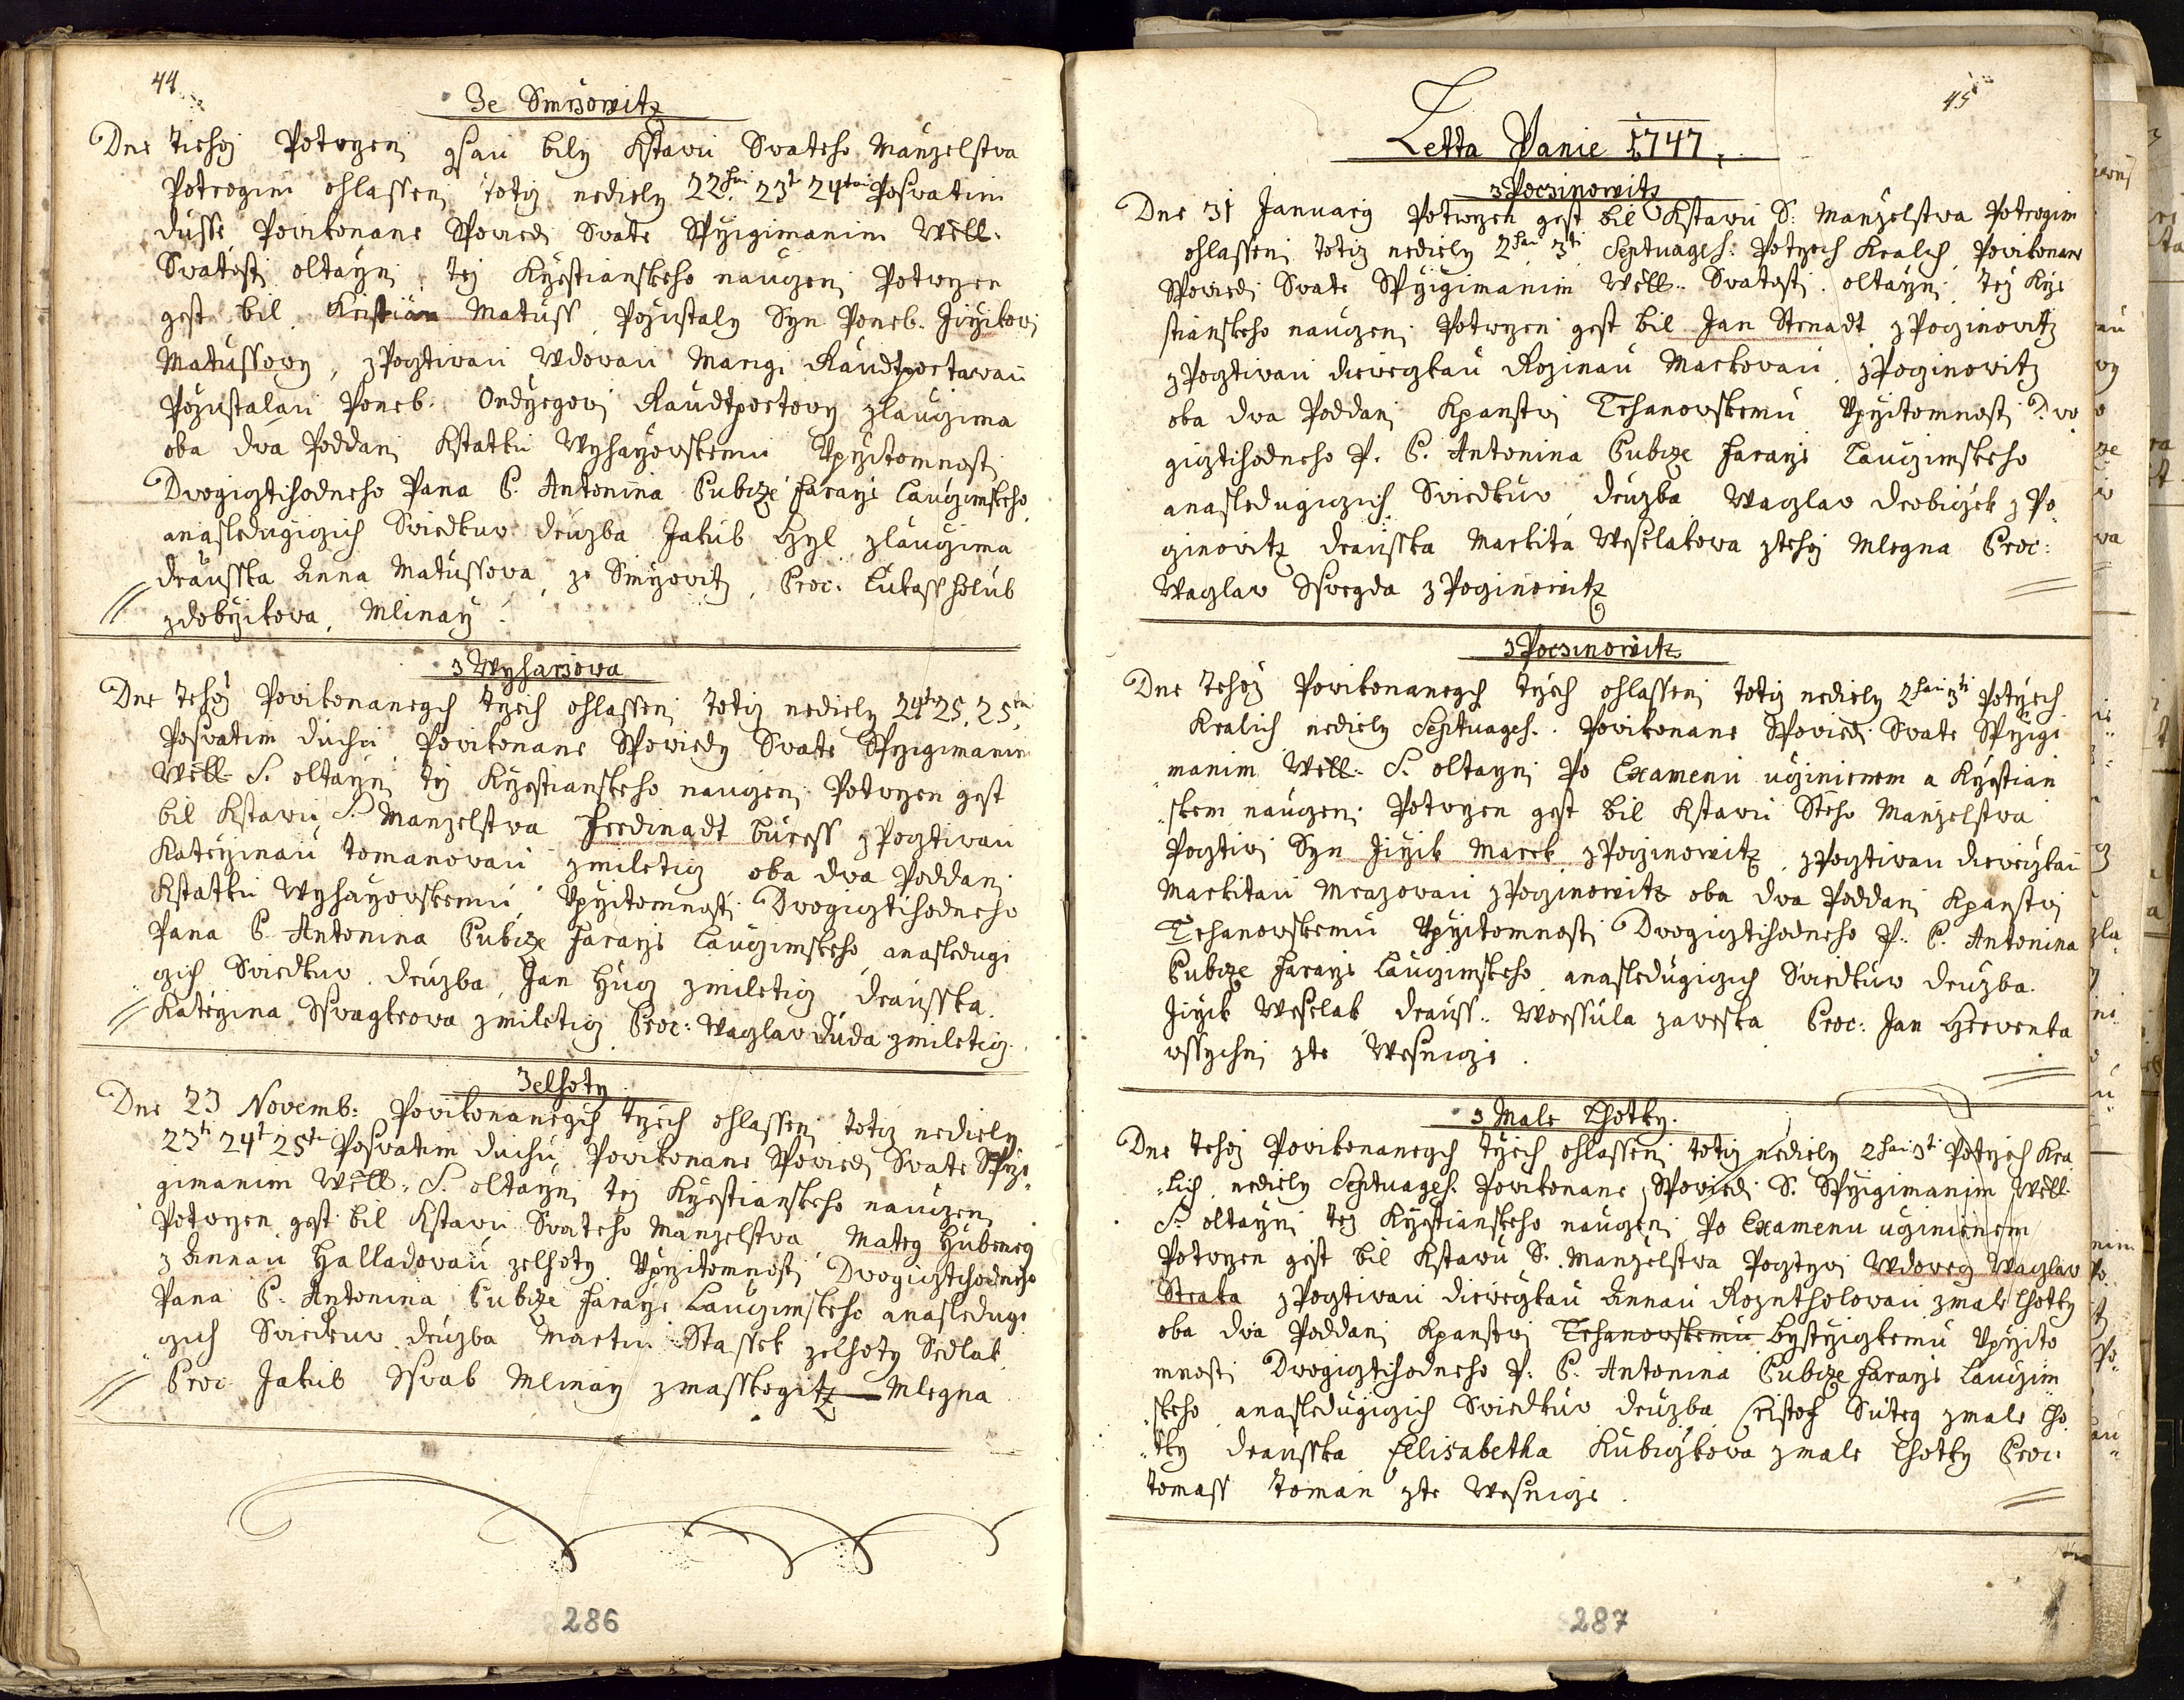 44
Ze Smrzowitz
Dne tehoz Potwrzeni gsau bily Kstawu Swateho Manzelstwa
Potrogim ohlasseni totiz nediely 22hu 23ti 24tau Poswatim
dusse Powikonane Spowiedi Swate Sprzigimanim Well.
Swatosti oltarzni tez Krzestianskeho nauczeni Potwrzen
gest bil Kristian Matuss Pozustaly Syn Poneb. Jirzikowi
Matussowy, zPocztiwau Wdowau Marigi Raudtpoctawau
Pozustalau Poneb. Ondrzegowi Raudtpoctowy zlauczima
oba dwa Poddani Kstatku Wyharzowskemu Vprzitomnosti
Dwogicztihodneho Pana P. Antonina Pubcze Fararze Lauczimskeho
anasledugiczich Swiedkuw druzba Jakub Hyl zlauczima
drausska Anna Matussowa, ze Smrzowitz, Proc: Lukass Holub
zdobrzikowa, Mlinarz.
z Wyharzowa
Dne tehoz Powikonanegch trzech ohlasseni totiz nediely 24t 25. 25ta
Poswatim duchu Powikonane Spowiedy Swate Sprzigimanim
Well. S. oltarzni tez Krzestianskeho nauczeni Potwrzen gest
bil Kstawu S. Manzelstwa Ferdinadt Buress zPocztiwau
Katerzinau Tomanowau zmiletig oba dwa Poddani
Kstatku Wyharzowskemu Vprzitomnosti Dwogicztihodneho
Pana P. Antonina Pubcze Fararze Lauczimskeho, anasledugi
czich Swiedkuw druzba Jan Hug zmiletig drausska
Katerzina Sswagkrowa zmiletig Proc: Waczlaw Duda zmiletig.
Zelhoty
Dne 23 Novemb: Powikonanegch trzech ohlasseni totiz nediely
23ti 24t 25ta Poswatim duchu Powikonane Spowiedi Swate Sprzi
gimanim Well. S. oltarzni tez Krzestianskeho nauczeni
Potwrzen gest bil Kstawu Swateho Manzelstwa Mateg Hubeneg
z Annau Halladowau zelhoty Vprzitomnosti Dwogicztihodneho
Pana P. Antonina Pubcze Fararze Lauczimskeho anasledugi
czich Swiedkuw druzba Martin Stassek zelhoty Sedlak
Proc Jakub Sswab Mlinarz zmasskogitz Mlegna
286
45
Letta Panie 1747.
z Poczinowitz
Dne 31 Januarij Potwrzen gest bil Kstawu S. Manzelstwa Potrogim
ohlasseni totiz nediely 2hau 3ti Septuages: Potrzech Kralich, Powikonane
Spowiedi Swate Sprzigimanim Well. Swatosti oltarzni tez Krze
stianskeho nauczeni Potwrzen gest bil Jan Strnadt zPoczinowitz
zPocztiwau diewczkau Rozinau Markowau zPoczinowitz
oba dwa Poddani Kpanstwi Trhanowskemu Vprzitomnosti Dwo
gicztihodneho P. P. Antonina Pubcze Fararze Lauczimskeho
anasledugiczich Swiedkuw druzba Waczlaw Drobiczek zPo
czinowitz drausska Markita Weselakowa ztehoz Mlegna Proc:
Waczlaw Sswegda zPoczinowitz
z Poczinowitz
Dne tehoz Powikonanegch trzech ohlasseni totiz nediely 2hau 3ti Potrzech
Kralich nediely Septuages. Powikonane Spowiedi Swate Sprzigi
manim Well. S. oltarzni Po Examenu uczinienem a Krzestian
skem nauczeni Potwrzen gest bil Kstawu Steho Manzelstwa
Pocztiwi Syn Jirzik Marek zPoczinowitz, zPocztiwau diewczkau
Markitau Mrazowau zPoczinowitz oba dwa Poddani Kpanstwi
Trhanowskemu Vprzitomnosti Dwogicztihodneho P. P. Antonina
Pubcze Fararze Lauczimskeho anasledugiczich Swiedkuw druzba.
Jirzik Weselak drauss. Worssula zaweska Proc: Jan Hrwenka
wssychni zte Wesnicze.
z Male Lhotky.
Dne tehoz Powikonanegch trzech ohlasseni totiz nediely 2hau 3ti Potrzech Kra
lich, nediely Septuages. Powikonane Spowiedi S. Sprzigimanim Well.
S. oltarzni tez Krzestianskeho nauczeni Po Examenu uczinienem
Potwrzen gest bil Kstawu S. Manzelstwa Pocztiwi Wdowecz Waczlaw
Straka zPocztiwau diewczkau Annau Rozntholowau zmale lhotky
oba dwa Poddani Kpanstwi Trhanowskemu bystrzickemu Vprzito
mnosti Dwogicztihodneho P. P. Antonina Pubcze Fararze Lauczim
skeho anasledugiczich Swiedkuw druzba Cristof Suteg zmale lho
tky drausska Ellisabetha Kubiczkowa zmale lhotky Proc:
Tomass Toman zte Wesnicze.
287